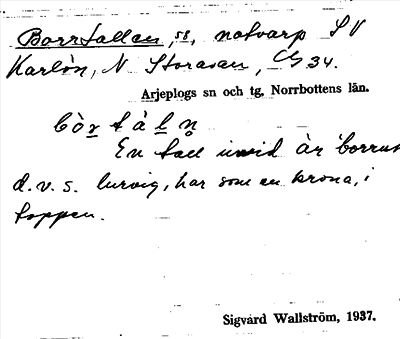 Borrtallen, sä, notvarp S V
Karlön, N. Storavan, C 34.
Arjeplogs sn och tg, Norrbottens län.
bòr tàln
En tall invid är 'borrut'
d.v.s. lurvig, har som en krona, i
toppen.
Sigvard Wallström, 1937.